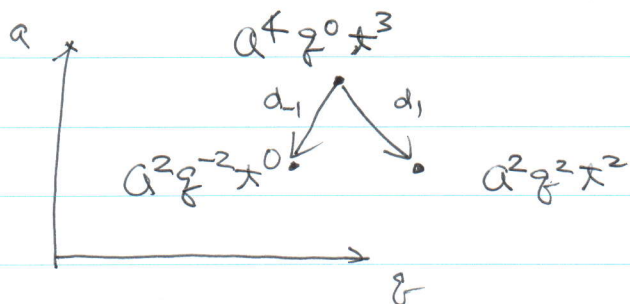 a
a⁴ q⁰ t³
d₋₁ d₁
a² q⁻² t⁰ a² q² t²
q